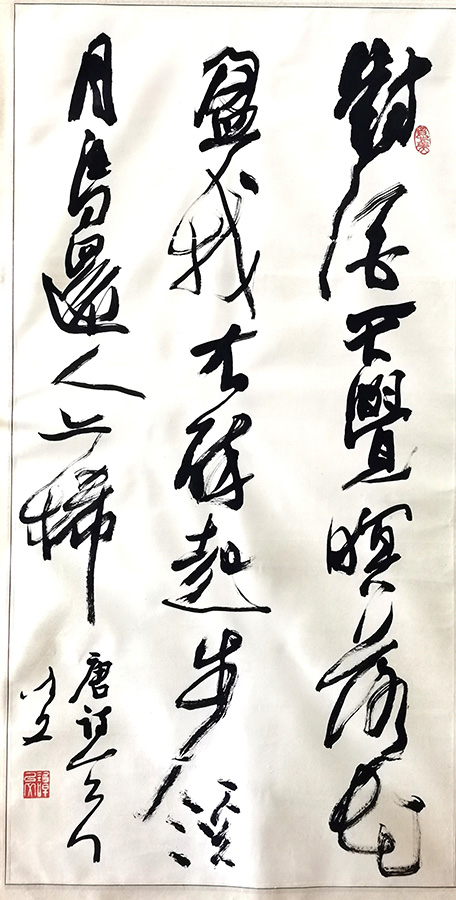 對酒不覺暝落花
盈我衣醉起步溪
月鳥還人亦稀
唐诗